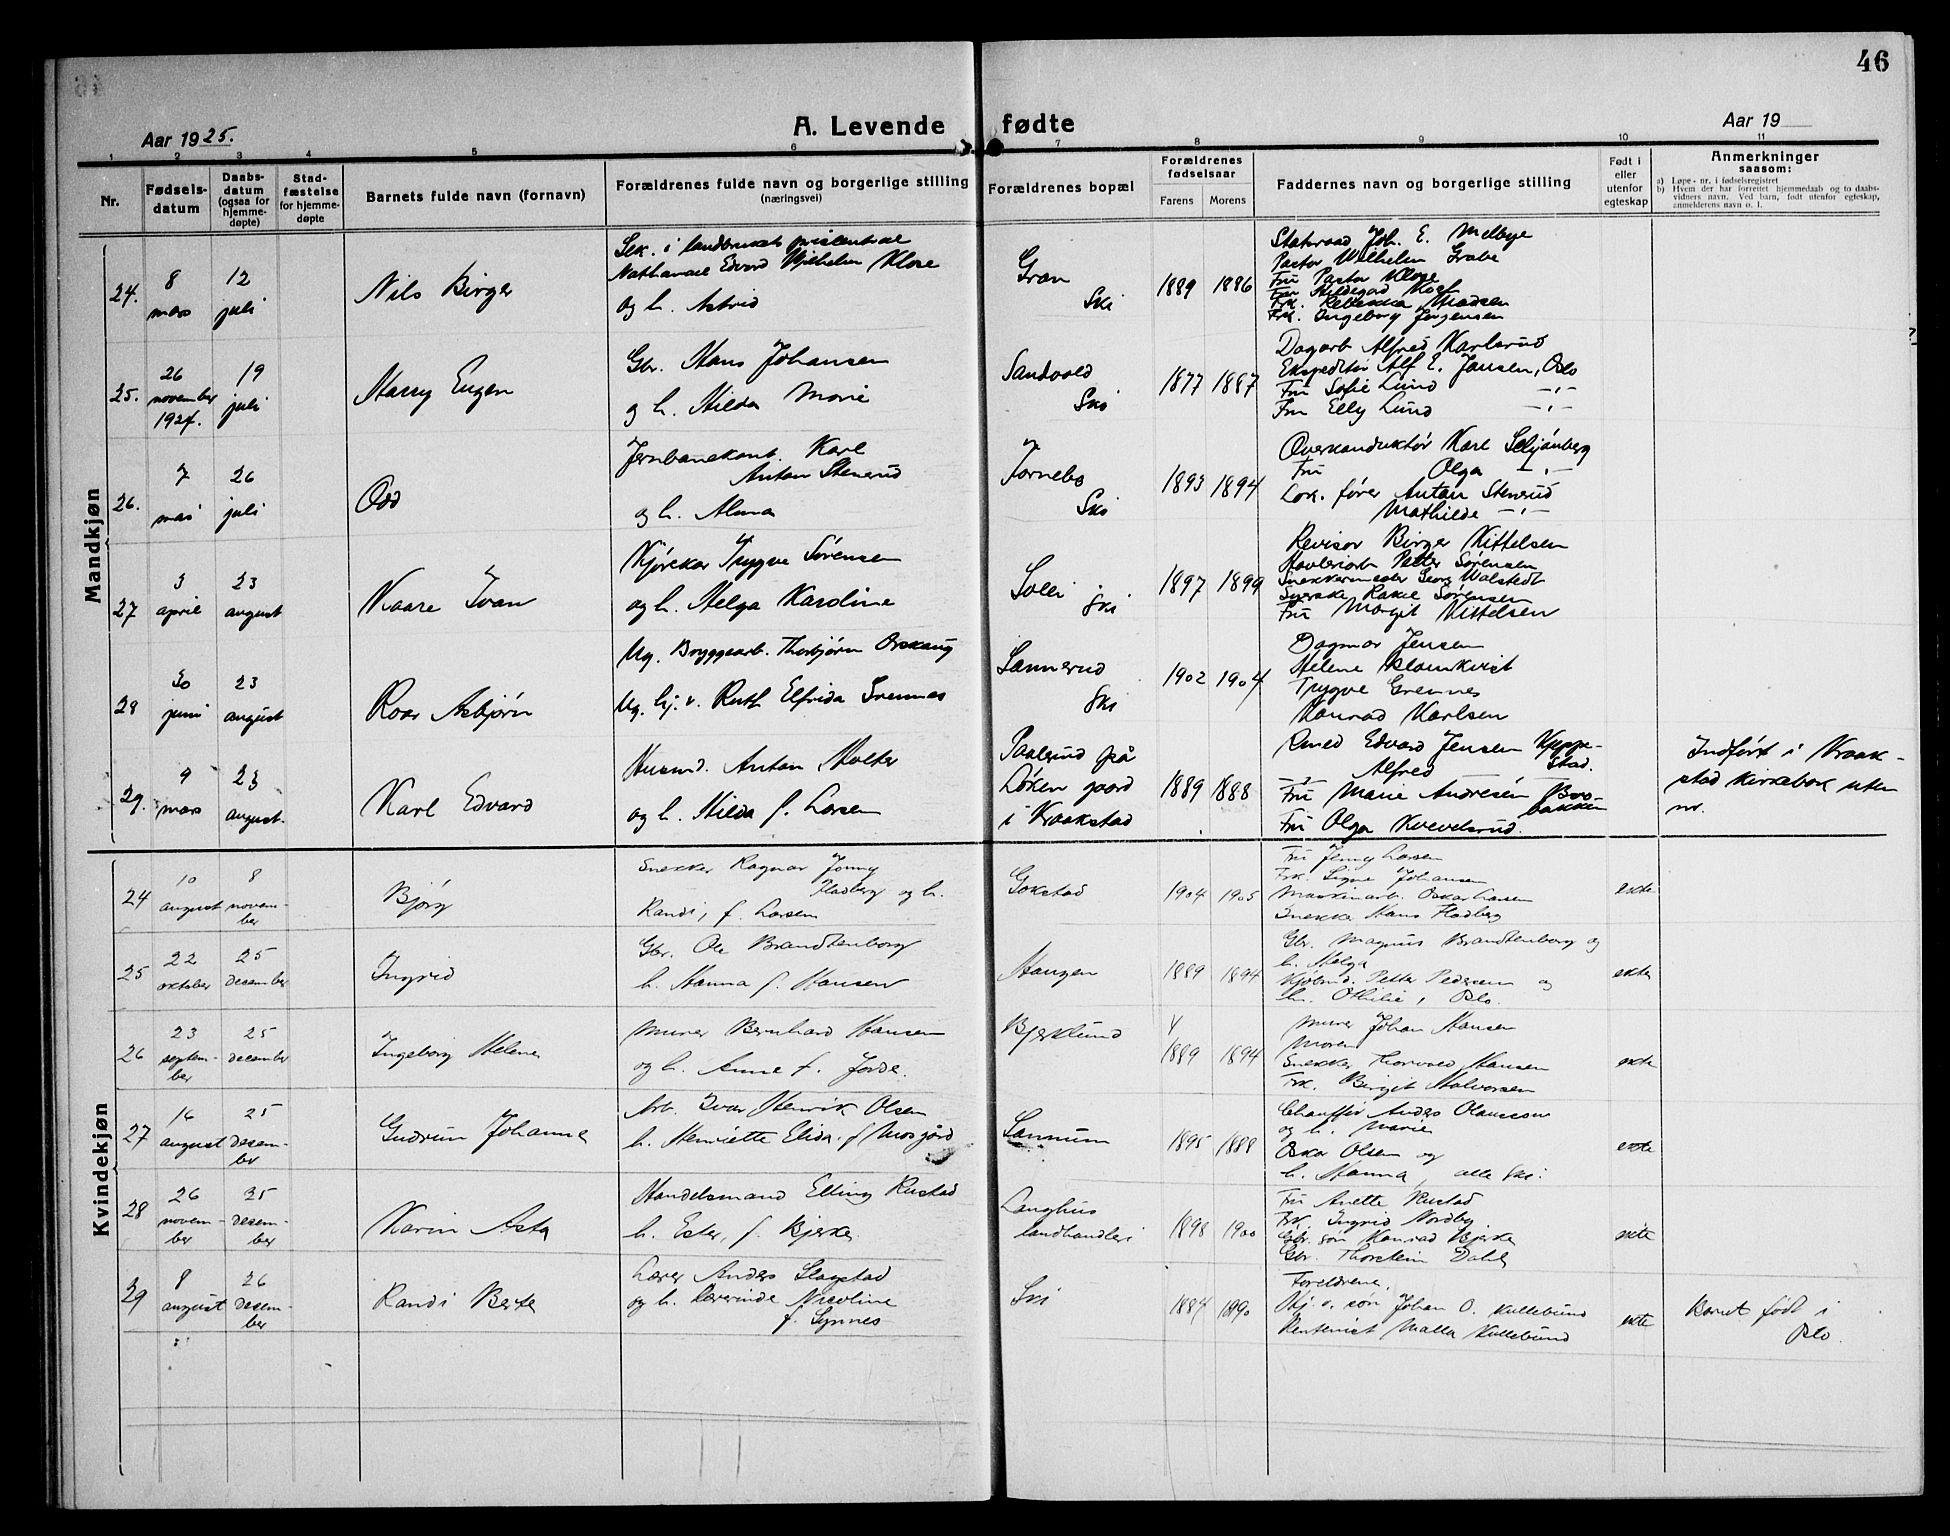 46
A. Levende fødte
Aar 1925.
Aar 19
1 2 3 4 5 6 7 8 9 10 11
Nr.
Fødsels-
datum
Daabs-
datum
(ogsaa for
hjemme-
døpte)
Stad-
fæstelse
for hjemme-
døpte
Barnets fulde navn (fornavn)
Forældrenes fulde navn og borgerlige stilling
(næringsvei)
Forældrenes bopæl
Forældrenes
fødselsaar
Farens Morens
Faddernes navn og borgerlige stilling
Født i
eller
utenfor
egteskap
Anmerkninger
saasom:
a) Løpe-nr. i fødselsregistret
b) Hvem der har forrettet hjemmedaab og to daabs-
vidners navn. Ved barn, født utenfor egteskap,
anmelderens navn o. l.
Mandkjøn
24.
8
mars
12
juli
Nils Birger
Sek. i landbrukets priscentral
Nathanael Edvard Vilhelm Klose
og h. Astrid
Gran
Ski
1889 1886
Statsraad Joh. E. Melbye
Pastor Wilhelm Grabe
Fru Pastor Klose
Fru Hildegard
Frk. Rebekka Madsen
Frk. Ingeborg Jørgensen
25.
26
november
1924.
19
juli
Harry Eugen
Gbr. Hans Johansen
og h. Hilda Marie
Sandvold
Ski
1877 1887
Dagarb. Alfred Karlsrud
Ekspeditør Alf E. Jansen, Oslo
Fru Sofie Lund -,-
Fru Elly Lund -,-
26.
7
mai
26
juli
Odd
Jernbanekont. Karl
Anton Stenerud
og h. Alma
Tornebo
Ski
1893 1894
Overkonduktør Karl
Fru Olga -,-
Lok. fører Anton Stensrud
Mathilde -,-
27
3
april
23
august
Kaare Ivan
Kjørekar Trygve Sørensen
og h. Helga Karoline
Solli
Ski
1897 1899
Revisor Birger Kittelsen
Petter Sørensen
Snekkermester Georg Walstedt
Rakel Sørensen
Fru Margit Kittelsen
28
30
juni
23
august
Roar Asbjørn
Ug. Bryggearb. Thorbjørn Orskaug
Ug. tj. v. Ruth Elfrida Grennes
Sannerud
Ski
1902 1904
Dagmar Jensen
Helene Blomkvist
Trygve Grennes
Konrad Karlsen
29.
9
mars
23
august.
Karl Edvard
Husmd. Anton Holter
og h. Hilda f. Larsen
Paalerud på
Løken gaard
i Kraakstad
1889 1888
Edvard Jensen Keppe-
stad.
-,- Alfred
Fru Marie Andresen
bakken
Fru Olga Kvevelsrud.
Indført i Kraak-
stad kirkebok uten
nr.
Kvindekjøn
24
10
august
8
novem-
ber
Bjørg
Snekker Ragnar Jonny
Fladberg og h.
Randi, f. Larsen
Gokstad
1904 1905
Fru Jenny Larsen
Frk. Signe Johansen
Maskinarb. Oskar Larsen
Snekker Hans Fladberg
ekte
25
22
oktober
25
desember
Ingrid
Gbr. Ole Brandtenborg
h. Hanna f. Hansen
Haugen
1889 1894
Gbr. Magnus Brandtenborg og
h. Helga
Kjøbmd. Petter Pedersen og
h. Othilie, Oslo.
ekte
26
23
septem-
ber
25
desember
Ingeborg Helene
Murer Bernhard Hansen
og h. Anne f. Jorde.
Bjerklund
1889 1894
Murer Johan Hansen
Moren
Snekker Thorvald Hansen
Frk. Birgit Halvorsen
ekte
27
16
august
25
desem-
ber
Gudrun Johanne
Arb. Ivar Henrik Olsen
h. Henriette Elida f. Mosgård
Sannum
1895 1888
Chauffør Anders Olaussen
og h. Marie
Oskar Olsen og
h. Hanna, alle Ski.
ekte
28
26
novem-
ber
25
desem-
ber
Karin Asta
Handelsmand Elling Rustad
h. Ester, f. Bjerke
Langhus
landhandleri
1898 1900
Fru Anette Rustad
Frk. Ingrid Nordby.
Gbr. søn Konrad Bjerke
Gbr. Thorstein Dahl
ekte
29
8
august
26
desem-
ber
Randi Berte
Lærer Anders Slagstad
og h. lærerinde Nicoline
f. Synnes
Ski
1884 1890
Foreldrene.
Johan O. Kullebund
Rentenist Malla Kullebund
ekte
Barnet født i
Oslo.